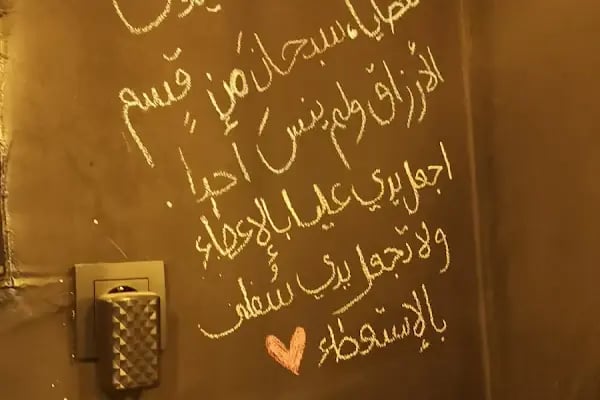 سبحان مَنِ قسم
الأرزاق ولم ينسَ احدا.
اجعل يدي عليا بالإعطاء
ولا تجعل يدي سُفلى
بالإستعطاء